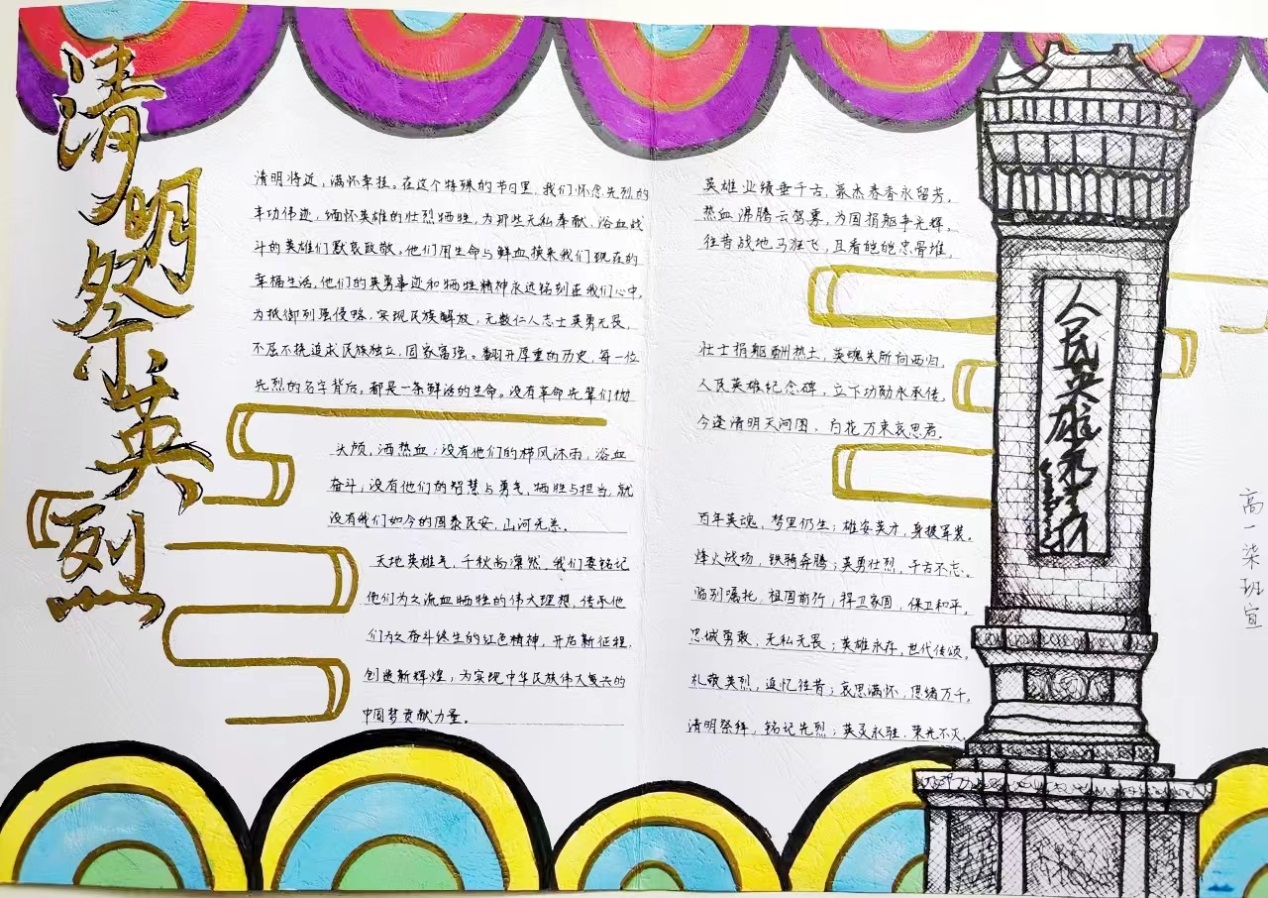 清明祭英烈
清明将近，满怀牵挂。在这个特殊的节日里，我们怀念先烈的
丰功伟迹，缅怀英雄的壮烈牺牲，为那些无私奉献、浴血战
斗的英雄们默哀致敬。他们用生命与鲜血换来我们现在的
幸福生活，他们的英勇事迹和牺牲精神永远铭刻在我们心中，
为抵御列强侵略，实现民族解放，无数仁人志士英勇无畏，
不屈不挠追求民族独立，国家富强。翻开厚重的历史，每一位
先烈的名字背后，都是一条鲜活的生命。没有革命先辈们抛
头颅，洒热血；没有他们的栉风沐雨，浴血
奋斗；没有他们的智慧与勇气，牺牲与担当，就
没有我们如今的国泰民安，山河无恙。
天地英雄气，千秋尚凛然，我们要铭记
他们为之流血牺牲的伟大理想，传承他
们为之奋斗终生的红色精神，开启新征程，
创造新辉煌，为实现中华民族伟大复兴的
中国梦贡献力量。
英雄业绩垂千古，豪杰春香永留芳，
热血沸腾云驾雾，为国捐躯争光辉，
往昔战地马狂飞，且看皑皑忠骨堆，
壮士捐躯酬热土，英魂失所向西归，
人民英雄纪念碑，立下功勋永承传，
今逢清明天河图，白花万束哀思君。
百年英魂，梦里仍生；雄姿英才，身披军装。
烽火战场，铁骑奔腾；英勇壮烈，千古不忘。
临别嘱托，祖国前行；捍卫家国，保卫和平。
忠诚勇敢，无私无畏；英雄永存，世代传颂。
札敬英烈，追忆往昔；哀思满怀，思绪万千。
清明祭拜，铭记先烈；英灵永驻，荣光不灭。
人民英雄永垂不朽
高一柒班宣